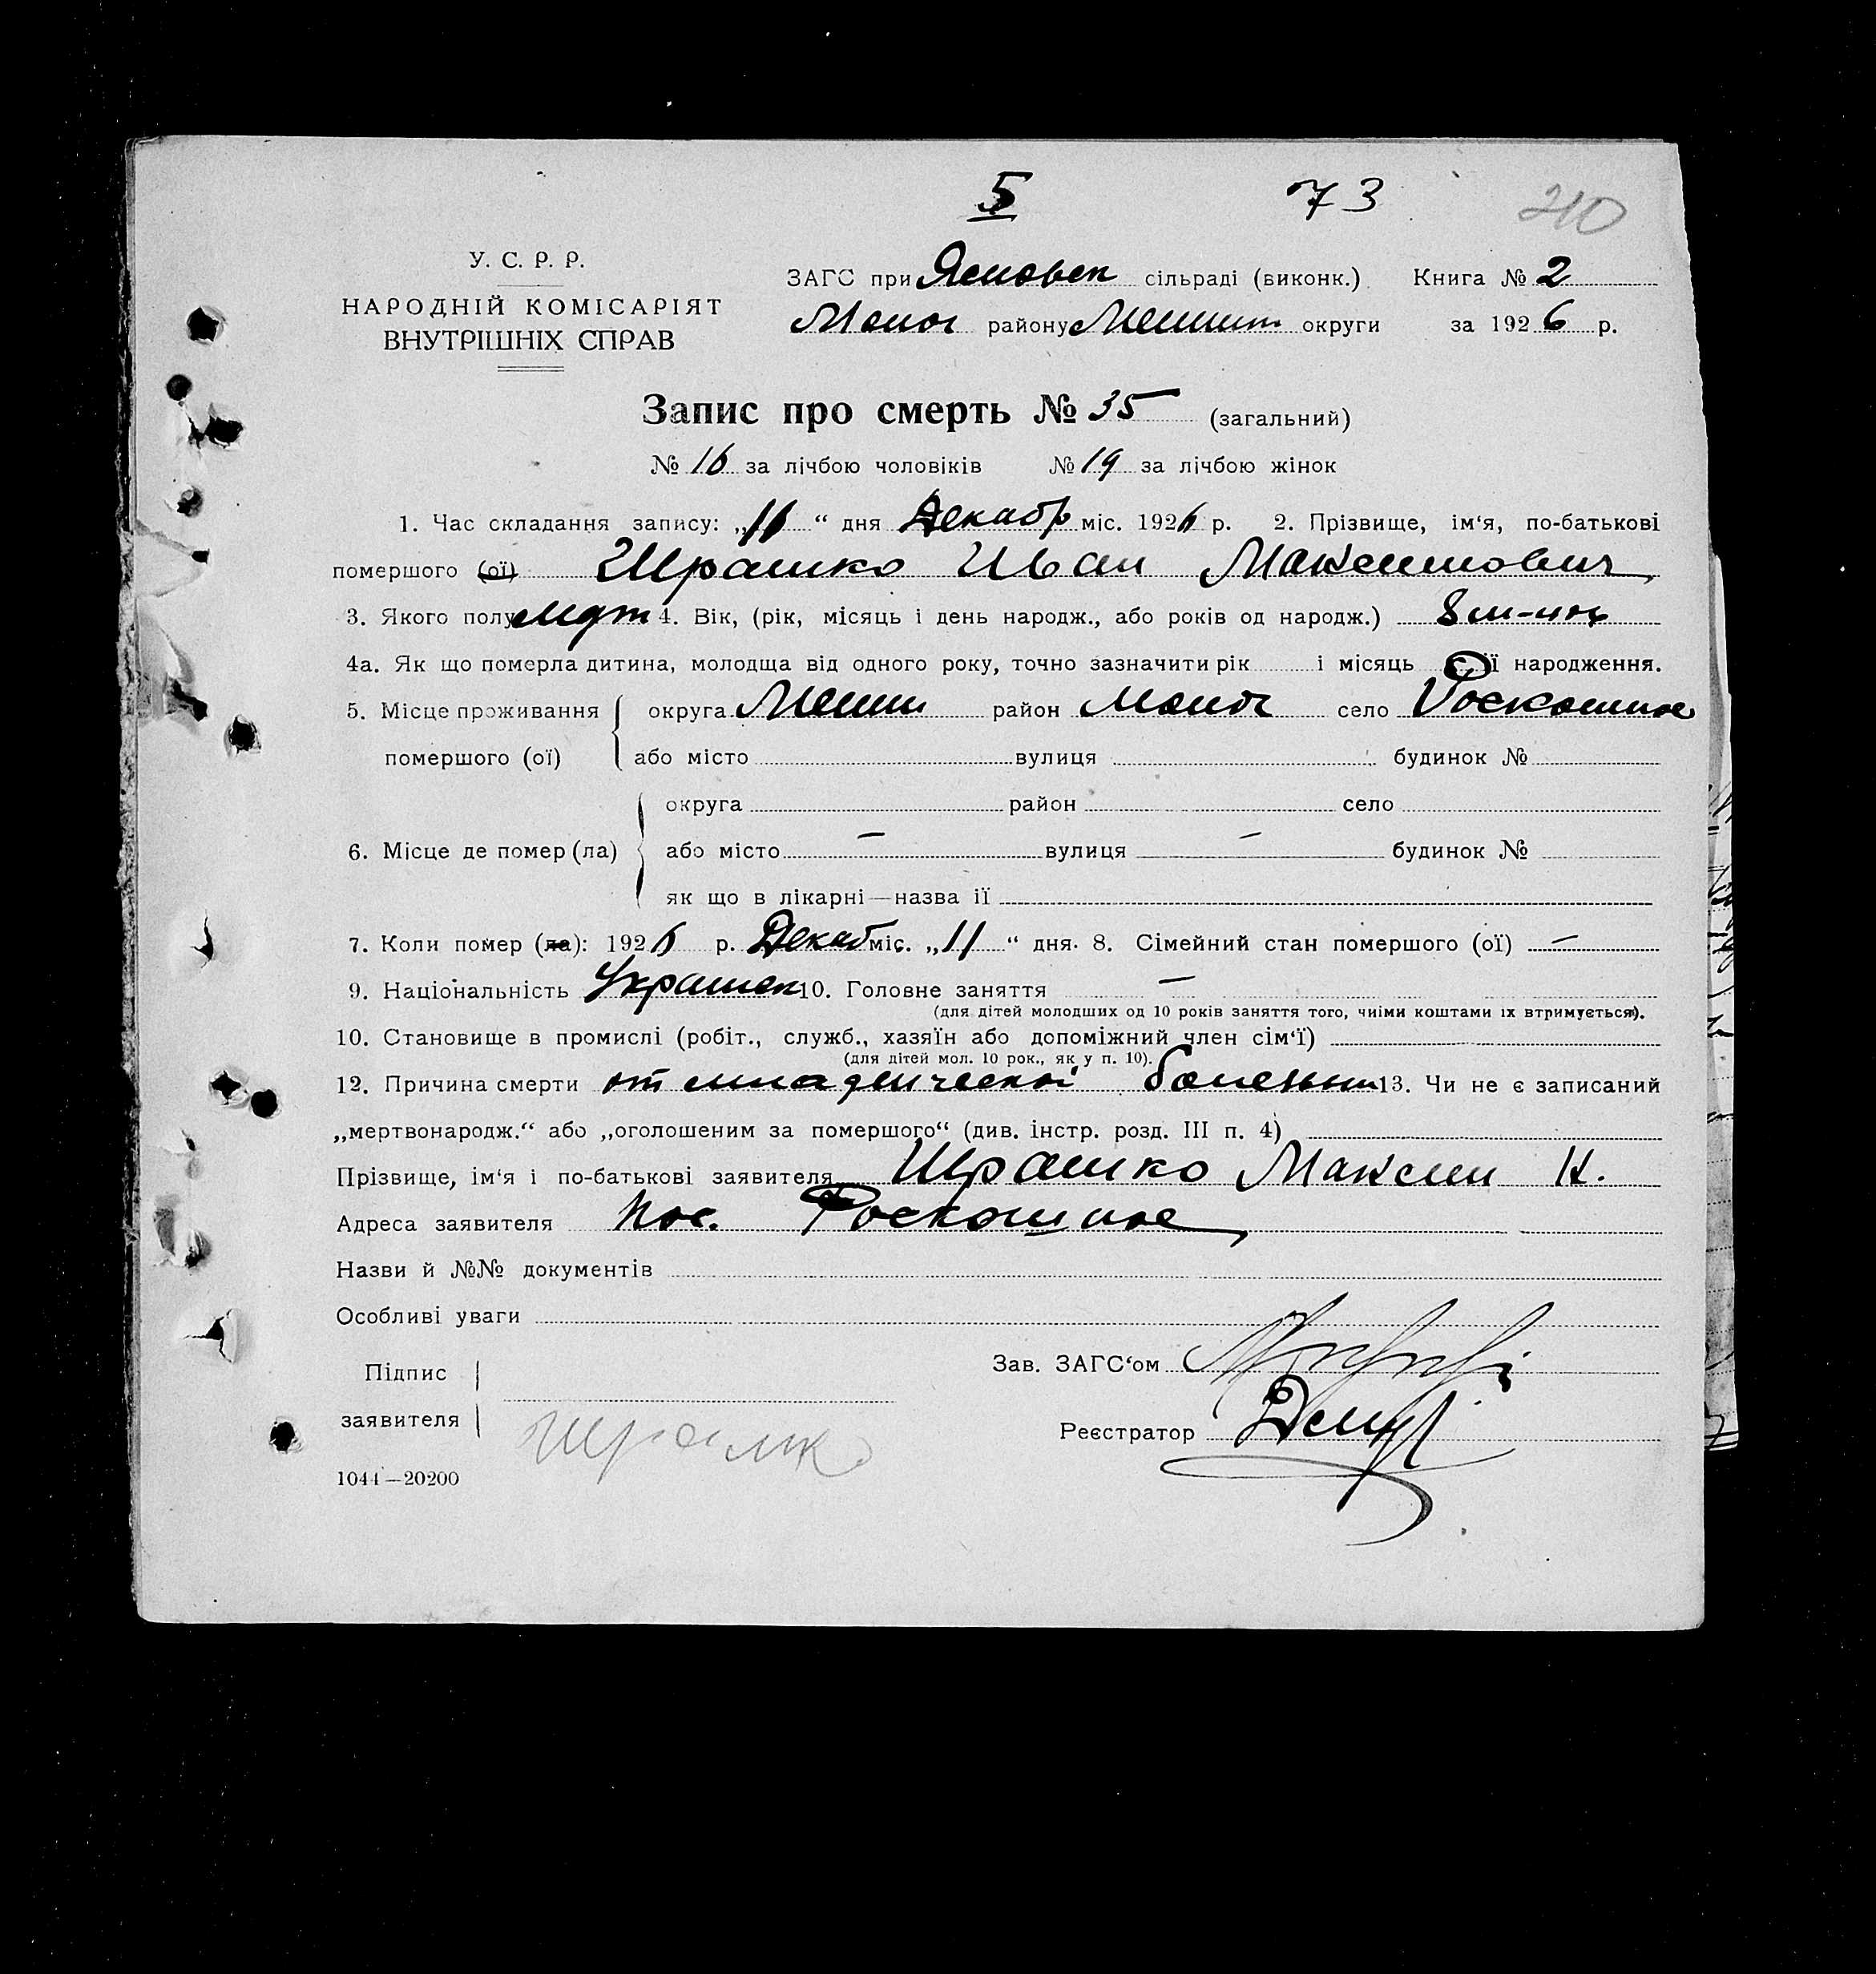 5 73 210
У. С. Р. Р.
НАРОДНІЙ КОМІСАРІЯТ
ВНУТРІШНІХ СПРАВ
ЗАГС при сільраді (виконк.) Книга № 2
району округи за 1926 р.
Запис про смерть № 35 (загальний)
№ 16 за лічбою чоловіків № 19 за лічбою жінок
1. Час складання запису: „11“ дня Декабр міс. 1926 р. 2. Прізвище, ім‘я, по-батькові
помершого (ої) Шрамко Иван Максимович
3. Якого полу 4. Вік, (рік, місяць і день народж., або років од народж.) 8
4а. Як що померла дитина, молодща від одного року, точно зазначити рік і місяць її народження.
5. Місце проживання округа район село Роскошное
помершого (ої) або місто вулиця будинок №
округа район село
6. Місце де помер (ла) або місто — вулиця — будинок №
як що в лікарні—назва ії
7. Коли помер (ла): 1926 р. Декаб міс. „11“ дня. 8. Сімейний стан помершого (ої) —
9. Національність Украинец 10. Головне заняття —
(для дітей молодших од 10 років заняття того, чиїми коштами їх втримується).
10. Становище в промислі (робіт., служб., хазяїн або допоміжний член сім‘ї)
(для дітей мол. 10 рок., як у п. 10).
12. Причина смерти от младенческой болезни 13. Чи не є записаний
„мертвонародж.“ або „оголошеним за помершого“ (див. інстр. розд. III п. 4)
Прізвище, ім‘я і по-батькові заявителя Шрамко Максим Н.
Адреса заявителя пос. Роскошное
Назви й №№ документів
Особливі уваги
Підпис
заявителя Шрамко
Зав. ЗАГС‘ом
Реєстратор
1044—20200